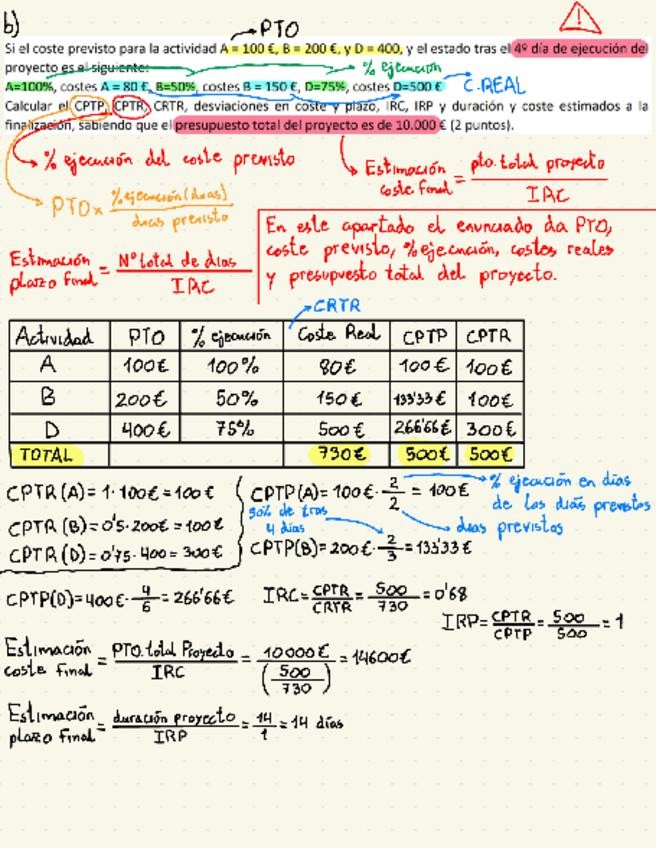 b)
PTO
Si el coste previsto para la actividad A = 100 €, B = 200 €, y D = 400, y el estado tras el 4º día de ejecución del
proyecto es el siguiente:
% ejecución
A=100%, costes A = 80 €, B=50%, costes B = 150 €, D=75%, costes D=500 €
C.REAL
Calcular el CPTP, CPTR, CRTR, desviaciones en coste y plazo, IRC, IRP y duración y coste estimados a la
finalización, sabiendo que el presupuesto total del proyecto es de 10.000 € (2 puntos).
% ejecución del coste previsto
Estimación coste final = pto. total proyecto / IRC
PTO x % ejecución (días) / días previsto
En este apartado el enunciado da PTO,
coste previsto, % ejecución, costes reales
y presupuesto total del proyecto.
Estimación plazo final = Nº total de días / IRC
CRTR
Actividad PTO % ejecución Coste Real CPTP CPTR
A 100€ 100% 80€ 100€ 100€
B 200€ 50% 150€ 133'33€ 100€
D 400€ 75% 500€ 266'66€ 300€
TOTAL 730€ 500€ 500€
CPTR(A)= 1·100€ = 100€
CPTR(B)= 0'5·200€ = 100€
CPTR(D)= 0'75·400 = 300€
CPTP(A)= 100€ · 2/2 = 100€
% ejecución en días
de los días previstos
días previstos
50% de tras
4 días
CPTP(B)= 200€ · 2/3 = 133'33€
CPTP(D)= 400€ · 4/6 = 266'66€
IRC= CPTR/CRTR = 500/730 = 0'68
IRP= CPTR/CPTP = 500/500 = 1
Estimación coste final = PTO. total Proyecto / IRC = 10000€ / (500/730) = 14600€
Estimación plazo final = duración proyecto / IRP = 14/1 = 14 días